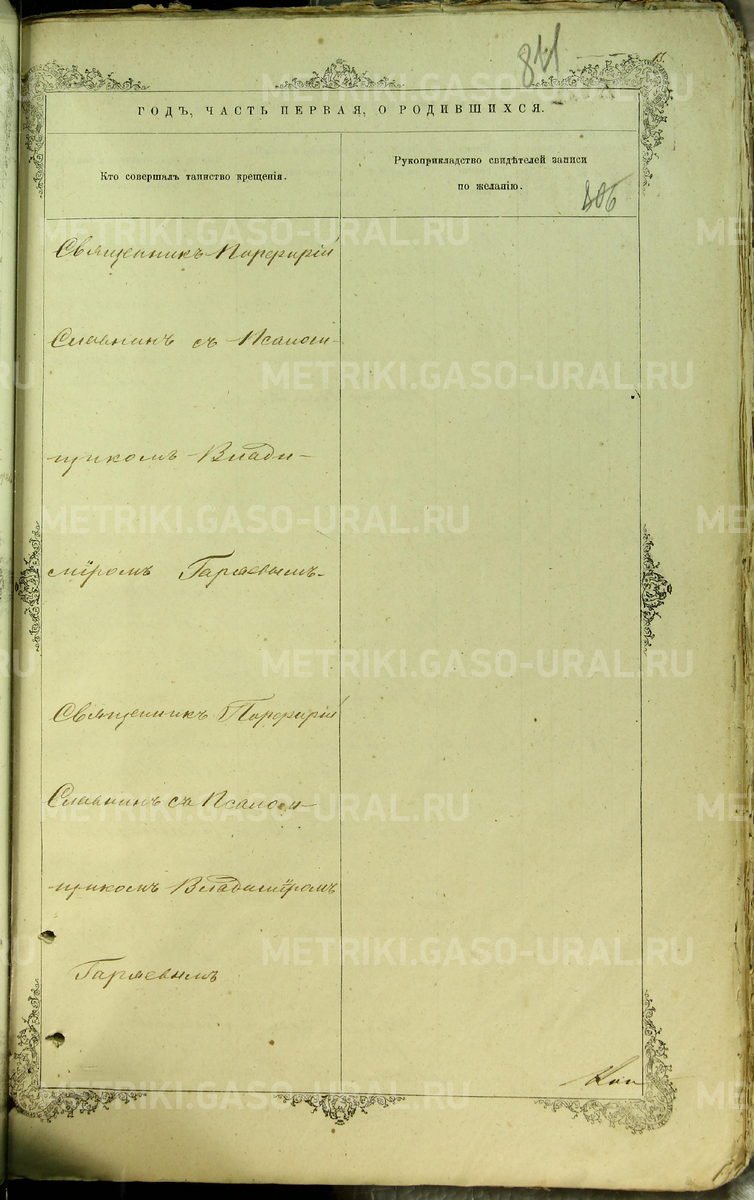 811
ГОДЪ, ЧАСТЬ ПЕРВАЯ, О РОДИВШИХСЯ.
Кто совершалъ таинство крещенія.
Рукоприкладство свидѣтелей записи
по желанію.
406
Священникъ Порфирій
Славнинъ съ Псалом-
щикомъ Влади-
міромъ Гаряевымъ
Священникъ Порфирій
Славнинъ съ Псалом-
щикомъ Владиміромъ
Гаряевымъ
METRIKI.GASO-URAL.RU